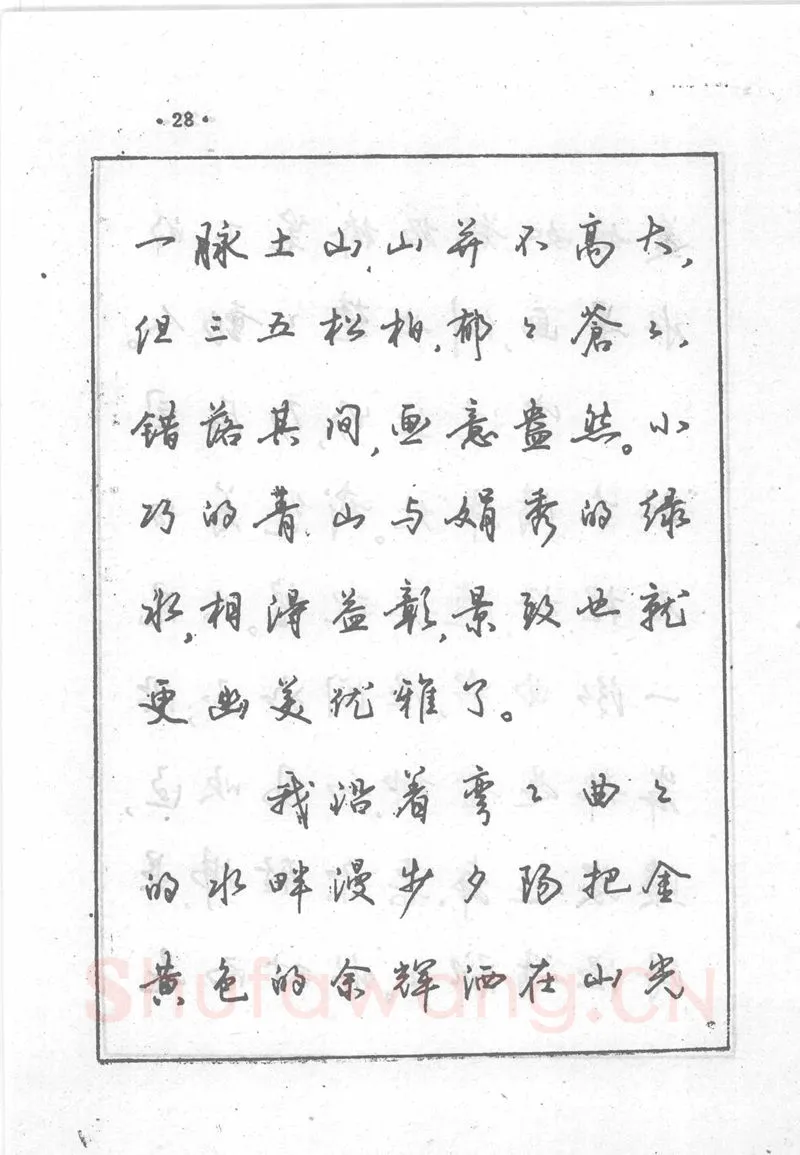 ·28·
一脉土山,山并不高大,
但三五松柏,郁々蒼々,
错落其间,画意盎然。小
巧的青山与娟秀的绿
水,相得益彰,景致也就
更幽美优雅了。
我沿着弯々曲々
的水畔漫步夕阳把金
黄色的余辉洒在山光
Shufawang.CN